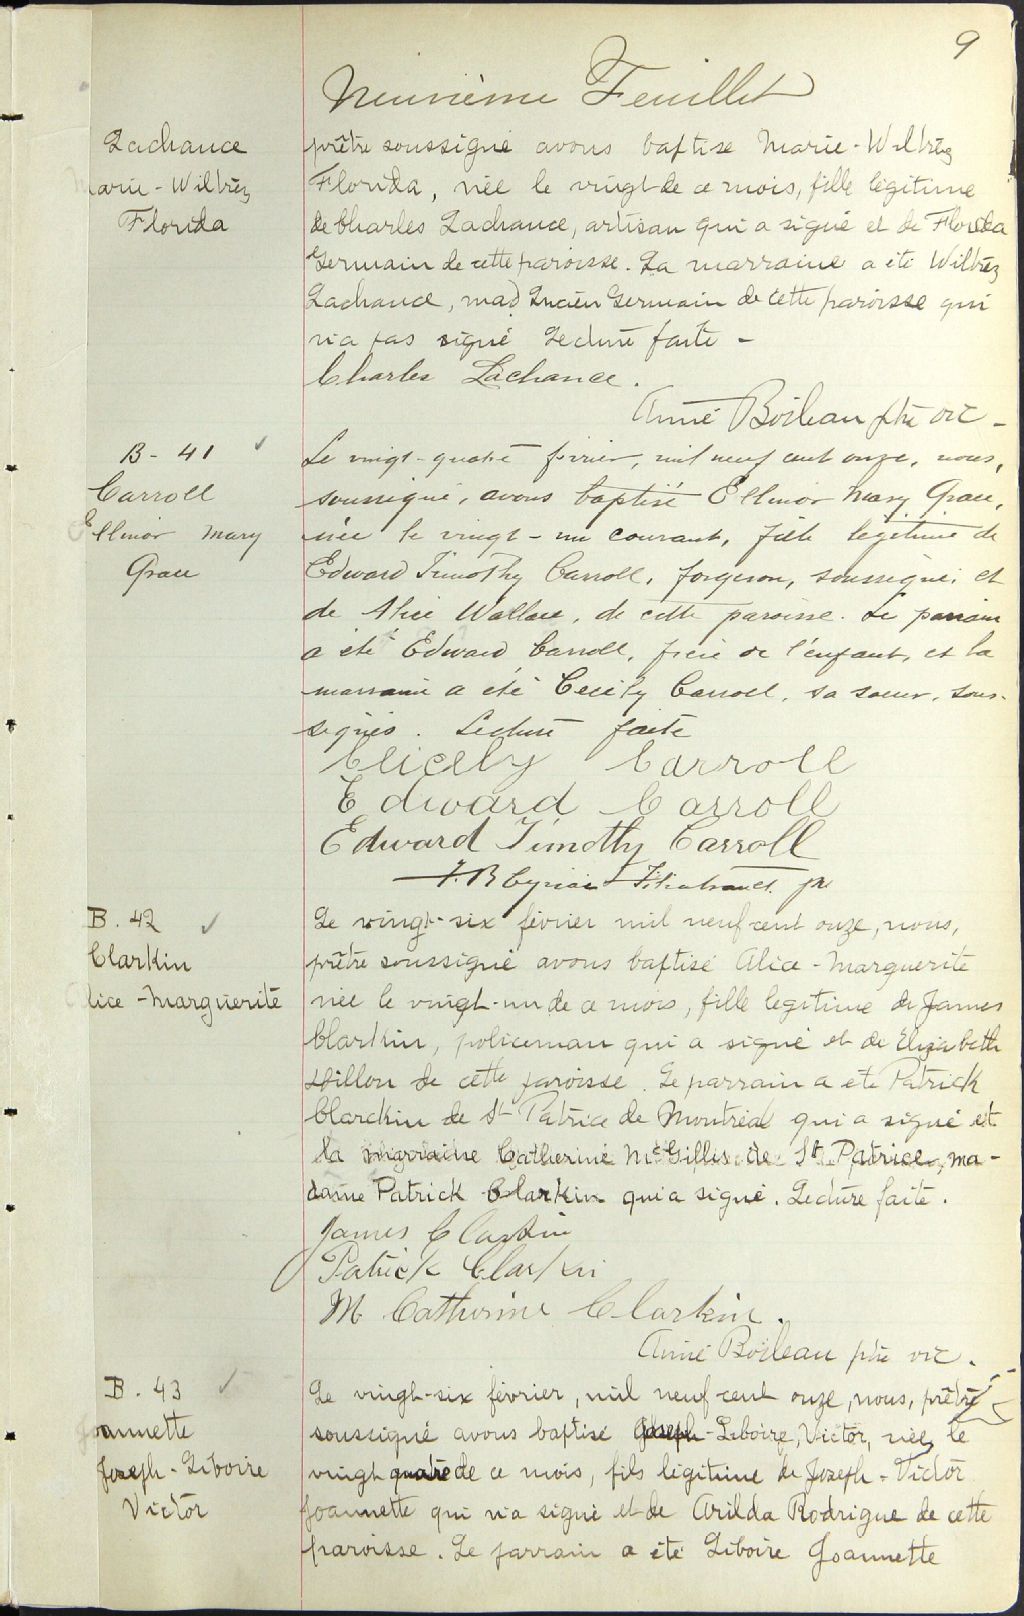 9
Neuvième Feuillet
Lachance
Marie-Wilbrèz
Florida
prêtre soussigné avons baptisé Marie-Wilbrèz
Florida, née le vingt de ce mois, fille légitime
de Charles Lachance, artisan qui a signé et de Florida
Germain de cette paroisse. La marraine a été Wilbrèz
Lachance, mad Lucien Germain de cette paroisse qui
n'a pas signé Lecture faite -
Charles Lachance.
Aimé Boileau ptre vic -
B - 41
Carroll
Ellinor Mary
Grace
Le vingt-quatre février, mil neuf cent onze, nous,
soussigné, avons baptisé Ellinor Mary Grace,
née le vingt-un courant, fille légitime de
Edward Timothy Carroll, forgeron, soussigné, et
de Alice Wallace, de cette paroisse. Le parrain
a été Edward Carroll, frère de l'enfant, et la
marraine a été Cecily Carroll, sa soeur, sous-
signés. Lecture faite
Cicely Carroll
Edward Carroll
Edward Timothy Carroll
J. B Cyriac ptr
B. 42
Clarkin
Alice-Marguerite
Le vingt-six février mil neuf cent onze, nous,
prêtre soussigné avons baptisé Alice-Marguerite
née le vingt-un de ce mois, fille légitime de James
Clarkin, policeman qui a signé et de Elizabeth
Dillon de cette paroisse. Le parrain a été Patrick
Clarckin de St Patrice de Montréal qui a signé et
la marraine Catherine McGillis de St Patrice, ma-
dame Patrick Clarkin qui a signé. Lecture faite.
James Clarkin
Patrick Clarkin
M. Catherine Clarkin.
Aimé Boileau ptre vic.
B. 43
Joannette
Joseph-Liboire
Victor
Le vingt-six février, mil neuf cent onze, nous, prêtre
soussigné avons baptisé Joseph-Liboire, Victor, née le
vingt quatre de ce mois, fils légitime de Joseph-Victor
Joannette qui n'a signé et de Arilda Rodrigue de cette
paroisse. Le parrain a été Liboire Joannette